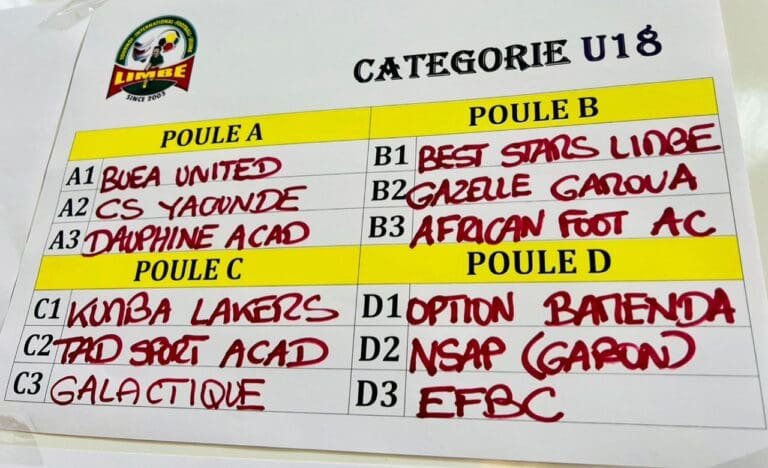 LIMBE
SINCE 2003
CATEGORIE U18
POULE A
A1 BUEA UNITED
A2 CS YAOUNDE
A3 DAUPHINE ACAD
POULE B
B1 BEST STARS LIMBE
B2 GAZELLE GAROUA
B3 AFRICAN FOOT AC
POULE C
C1 KUMBA LAKERS
C2 TAD SPORT ACAD
C3 GALACTIQUE
POULE D
D1 OPTION BAMENDA
D2 NSAP (GABON)
D3 EFBC